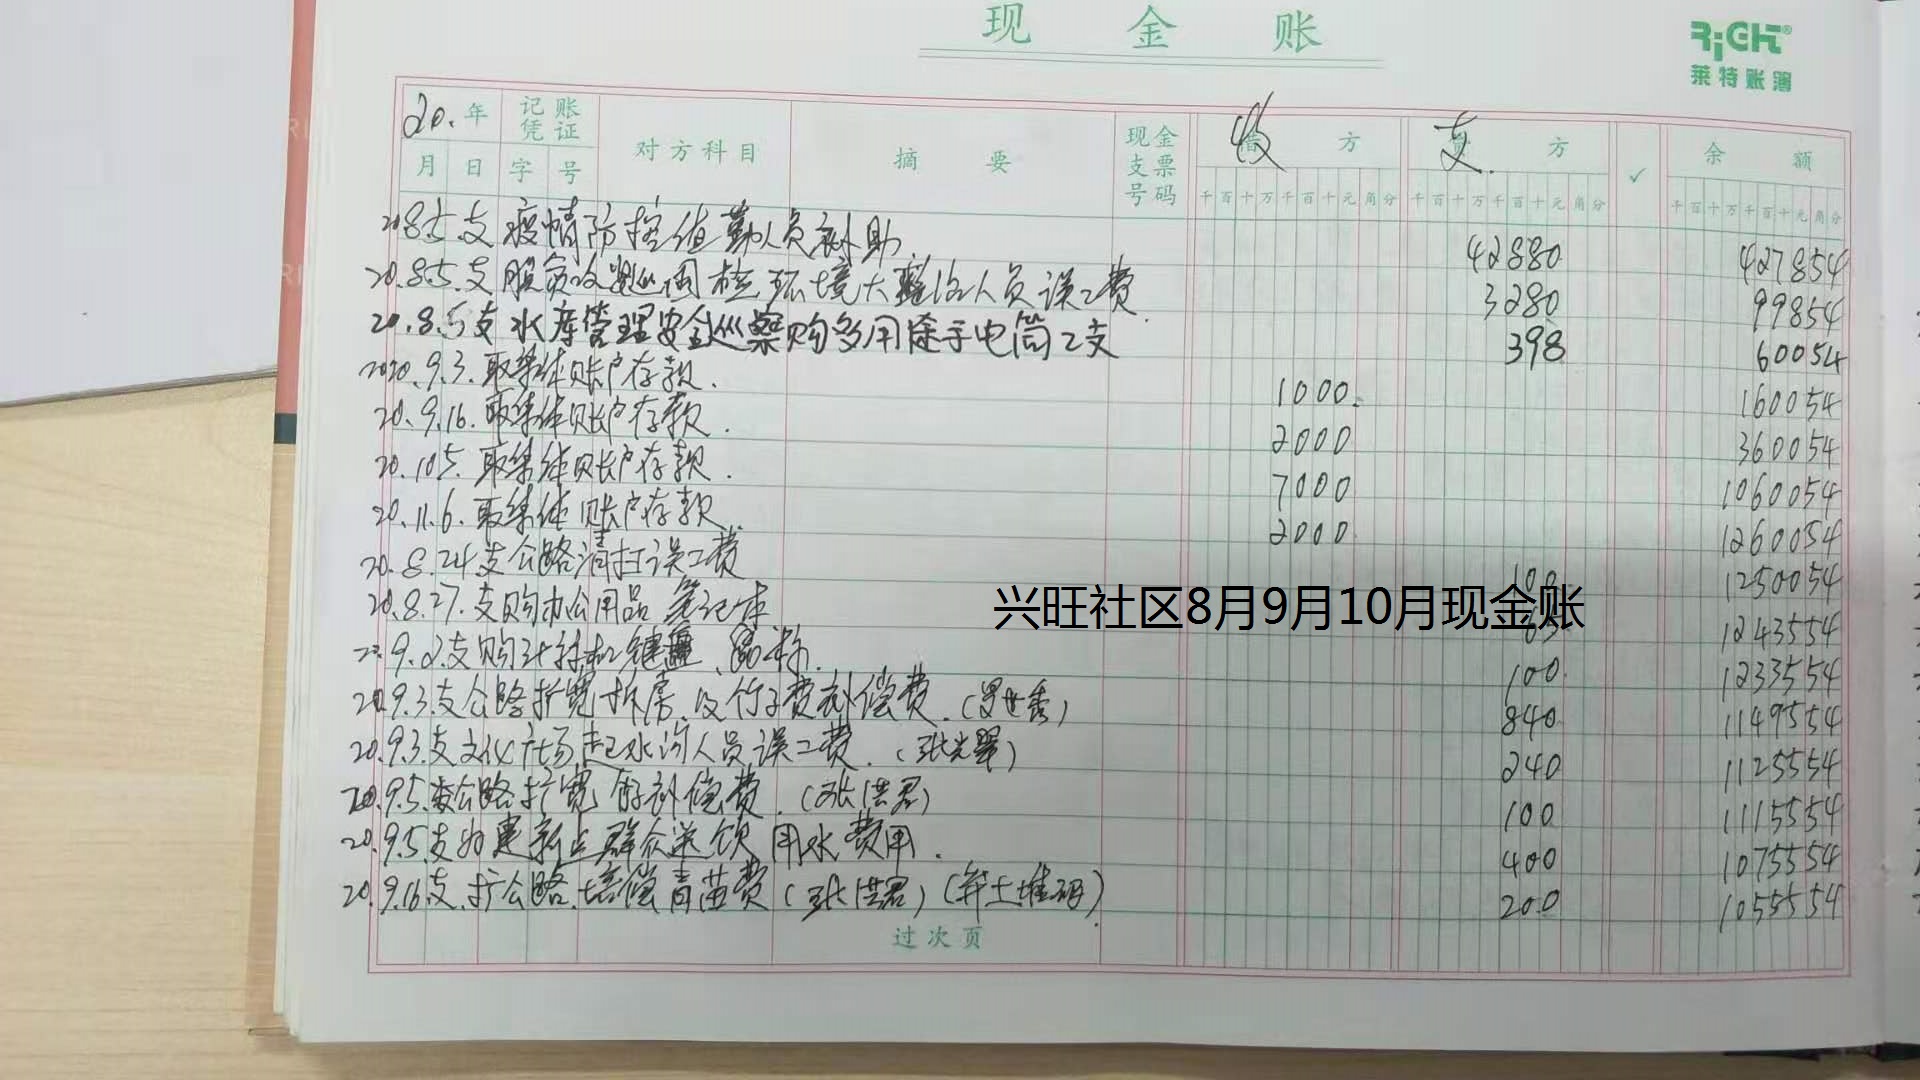 现 金 账
RiGHT®
莱特账簿
20.年 记账凭证 对方科目 摘 要 现金支票号码 收 方 支 方 ✓ 余 额
月 日 字 号 千百十万千百十元角分 千百十万千百十元角分 千百十万千百十元角分
20.8.5支疫情防控值勤人员补助 42880 427854
20.8.5.支 环境大整治人员误工费. 3280 99854
20.8.5支水库管理安全巡察购多用途手电筒2支 398 60054
2020.9.3.取集体账户存款. 1000. 160054
20.9.16.取集体账户存款. 2000 360054
20.10.5.取集体账户存款. 7000 1060054
20.11.6.取集体账户存款. 2000 1260054
20.8.24支公路清扫误工费 100 1250054
20.8.27.支购办公用品笔记本 1243554
兴旺社区8月9月10月现金账
9.2.支购计算机键盘、鼠标. 100 1233554
20.9.3.支公路扩宽拆房及竹子费补偿费.( 世秀) 840 1149554
20.9.3.支文化广场 人员误工费.(张光翠) 240 1125554
20.9.5.支公路扩宽 补偿费.(张洪君) 100 1115554
20.9.5.支为 群众送饮用水费用. 400 1075554
20.9.16.支扩公路培偿青苗费(张洪君)(弃土堆码). 200 1055554
过次页